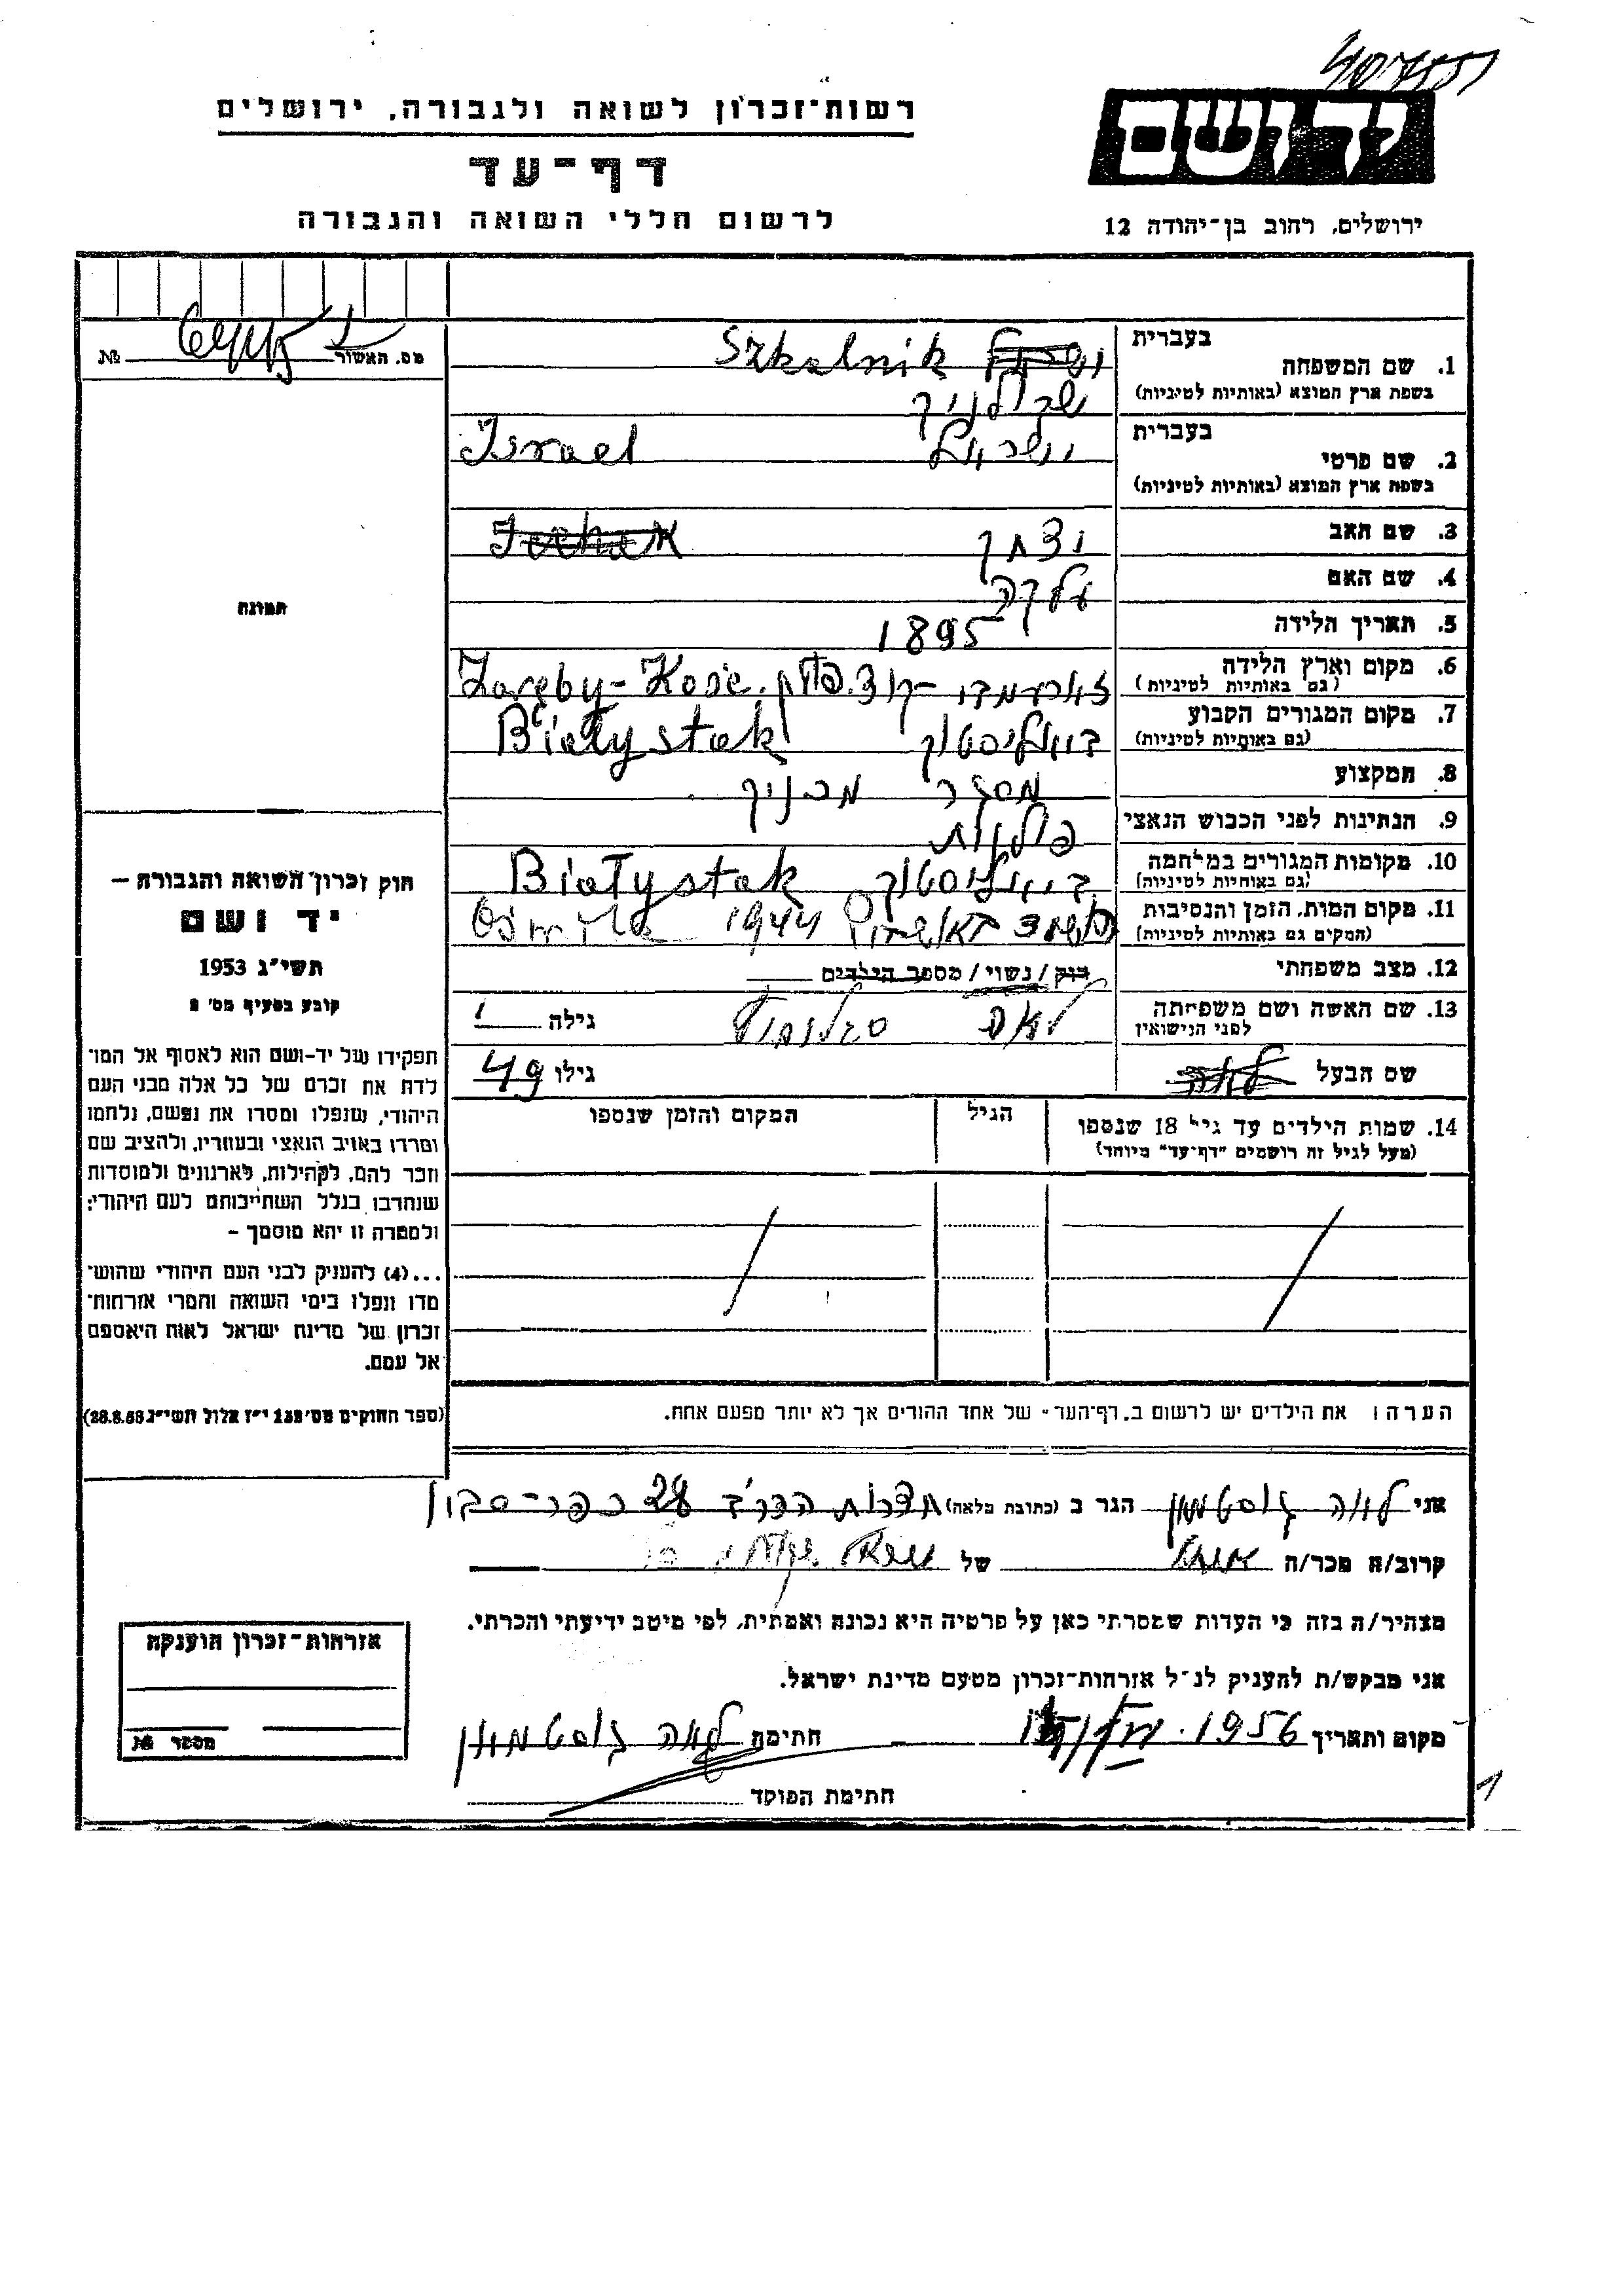 רשות־זכרון לשואה ולגבורה, ירושלים
יד ושם
דף־עד
לרשום חללי השואה והגבורה
ירושלים, רחוב בן־יהודה 12
מס. האשור № 
בעברית
1. שם המשפחה Szkolnik
בשפת ארץ המוצא (באותיות לטיניות) שקולניק
בעברית
2. שם פרטי ישראל Israel
בשפת ארץ המוצא (באותיות לטיניות)
3. שם האב יצחק
4. שם האם
5. תאריך הלידה 1895
6. מקום וארץ הלידה Zaręby-Kośc.
(גם באותיות לטיניות)
7. מקום המגורים הקבוע ביאליסטוק Białystok
(גם באותיות לטיניות)
8. המקצוע מסגר מכניק
9. הנתינות לפני הכבוש הנאצי פולנית
10. מקומות המגורים במלחמה ביאליסטוק Białystok
(גם באותיות לטיניות)
11. מקום המות, הזמן והנסיבות 1944
(המקום גם באותיות לטיניות)
12. מצב משפחתי רוק / נשוי / מספר הילדים
13. שם האשה ושם משפחתה גילה
לפני הנישואין
שם הבעל גילו 49
14. שמות הילדים עד גיל 18 שנספו הגיל המקום והזמן שנספו
(מעל לגיל זה רושמים "דף־עד" מיוחד)
הערה: את הילדים יש לרשום ב„דף־העד" של אחד ההורים אך לא יותר מפעם אחת.
תמונה
חוק זכרון השואה והגבורה —
יד ושם
תשי״ג 1953
קובע בסעיף מס׳ 2
תפקידו של יד־ושם הוא לאסוף אל המו־
לדת את זכרם של כל אלה מבני העם
היהודי, שנפלו ומסרו את נפשם, נלחמו
ומרדו באויב הנאצי ובעוזריו, ולהציב שם
וזכר להם, לקהילות, לארגונים ולמוסדות
שנחרבו בגלל השתייכותם לעם היהודי;
ולמטרה זו יהא מוסמך –
...(4) להעניק לבני העם היהודי שהוש־
מדו ונפלו בימי השואה והמרי אזרחות־
זכרון של מדינת ישראל לאות היאספם
אל עמם.
(ספר החוקים מס׳ 132 י״ז אלול תשי״ג 28.8.53)
אני לאה גוטמן הגר ב (כתובת מלאה) 28 כפר־סבא
קרוב/ה מכר/ה של
מצהיר/ה בזה כי העדות שמסרתי כאן על פרטיה היא נכונה ואמתית, לפי מיטב ידיעתי והכרתי.
אני מבקש/ת להעניק לנ״ל אזרחות־זכרון מטעם מדינת ישראל.
מקום ותאריך 1956 חתימה לאה גוטמן
חתימת הפוקד
אזרחות־זכרון הוענקה
מספר №